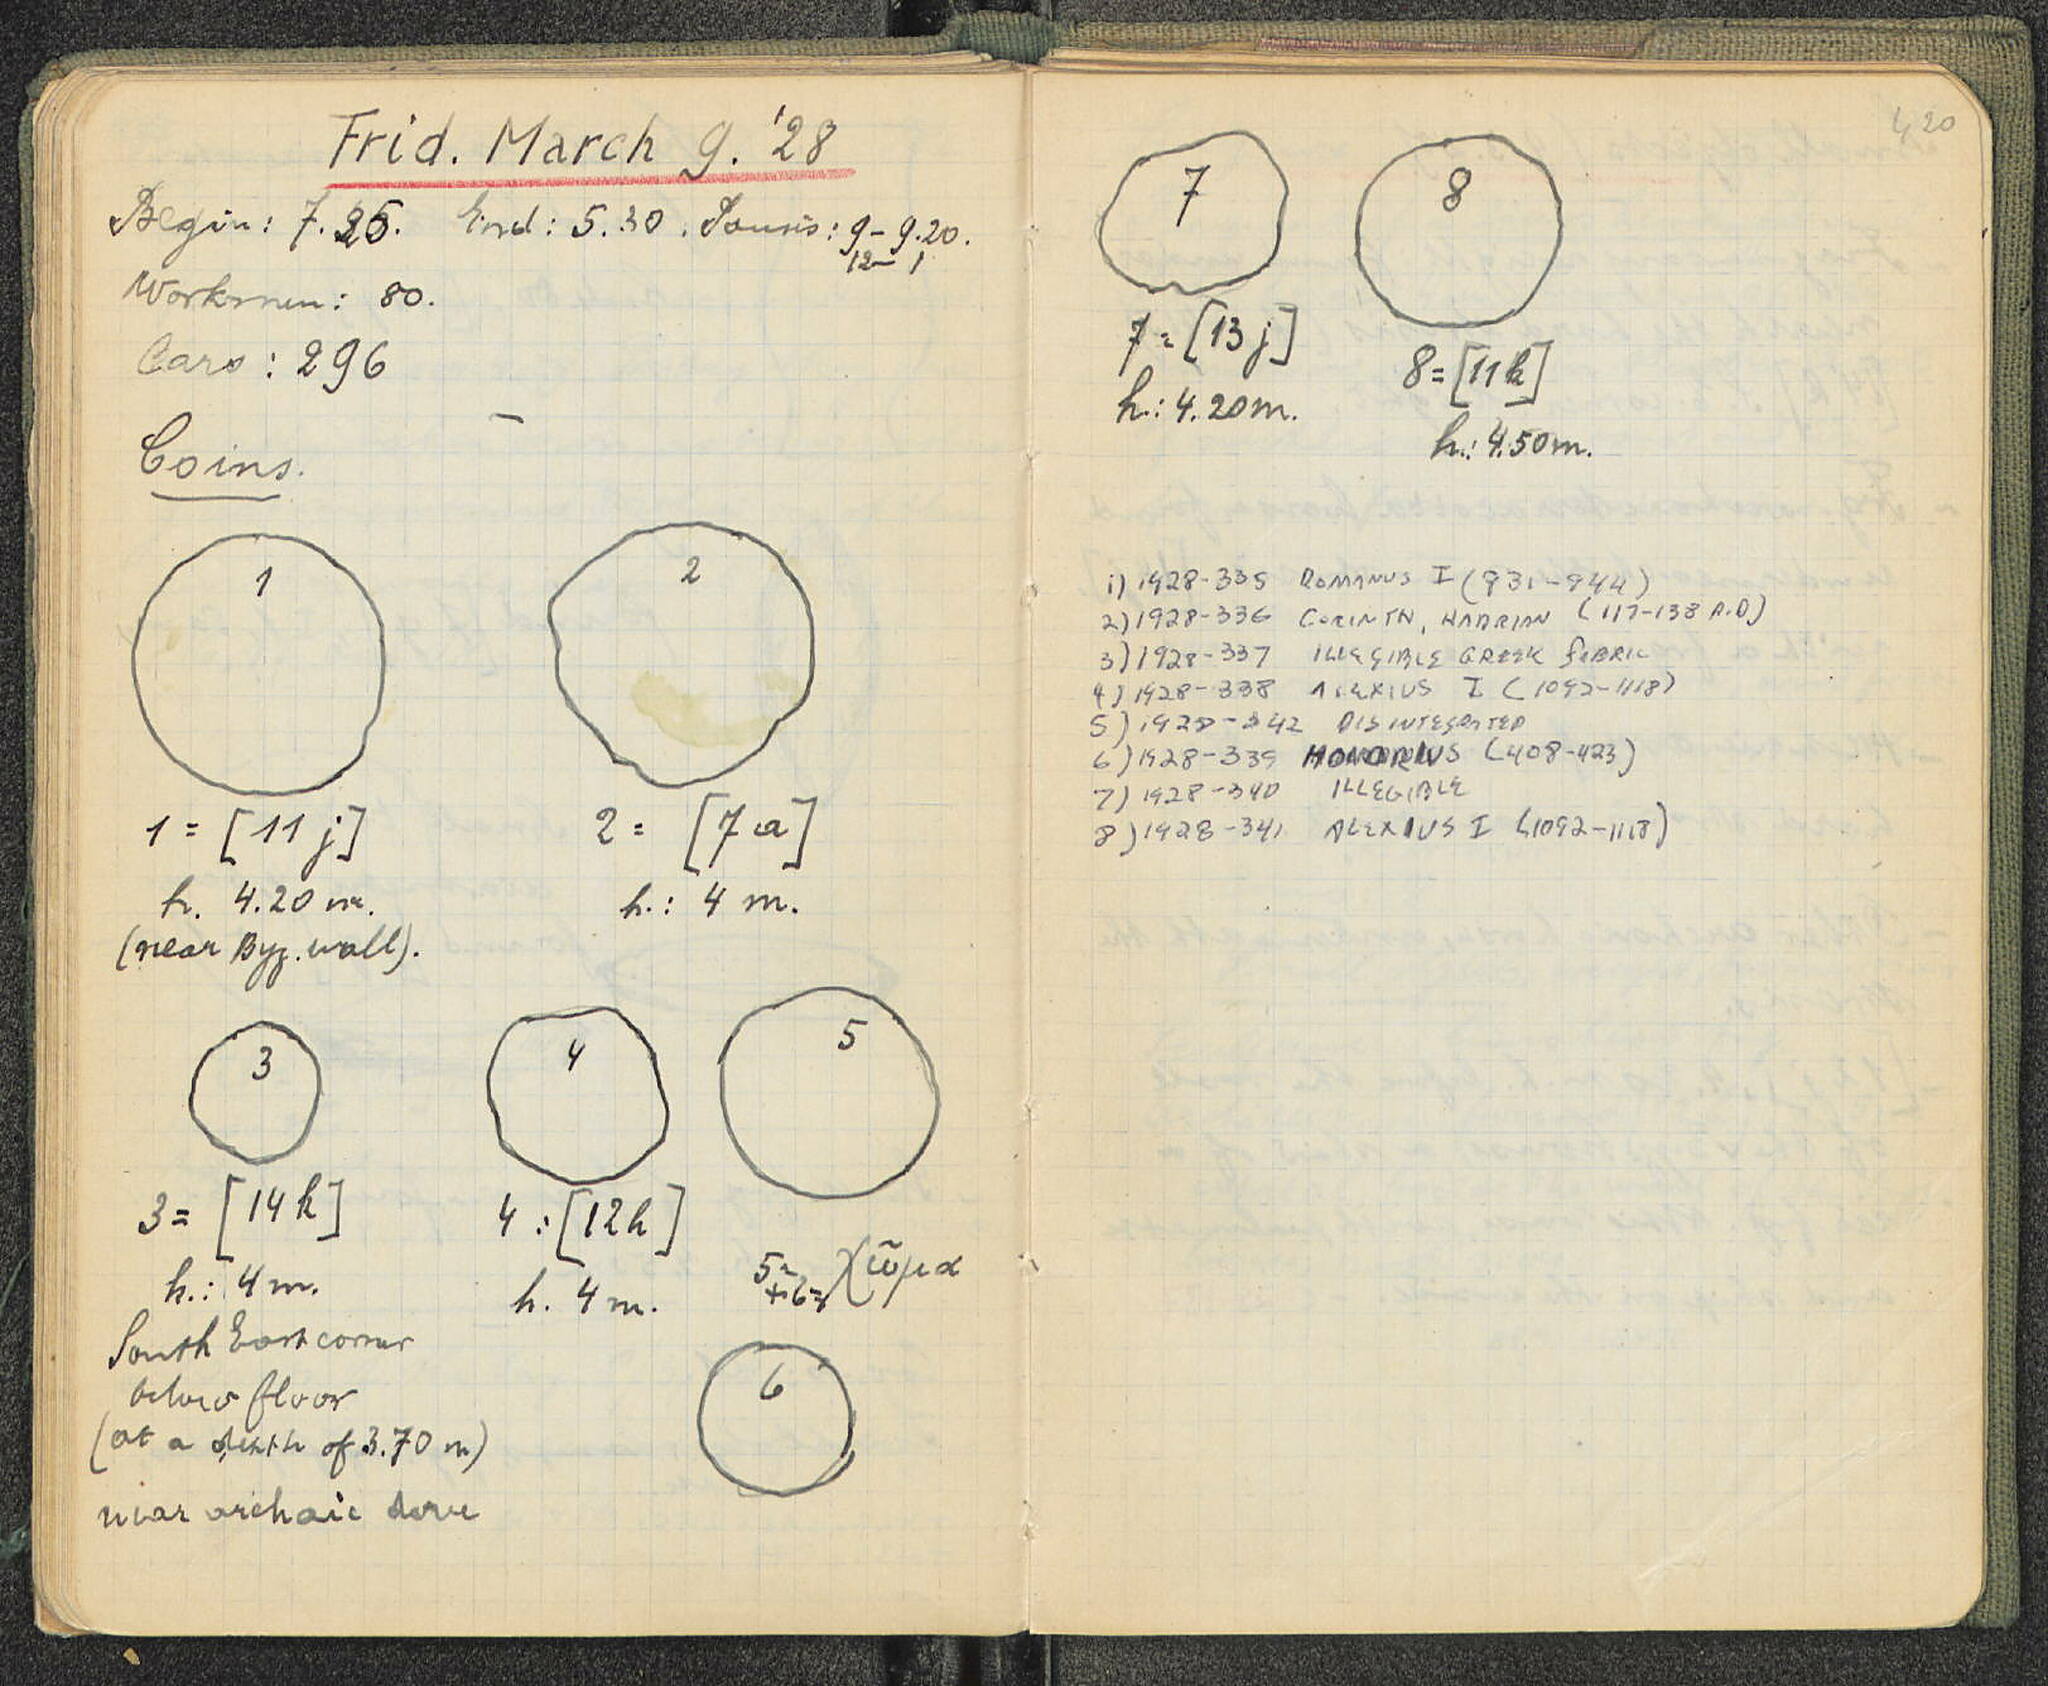 Frid. March 9. '28
Begin: 7.25. End: 5.30. Pausis: 9-9.20.
12-1
Workmen: 80.
Cars: 296
Coins.
1
2
1 = [11 j]
h. 4.20 m.
(near Byz. wall).
2 = [7 a]
h.: 4 m.
3
4
5
3 = [14 k]
h.: 4 m.
South East corner
below floor
(at a depth of 3.70 m)
near archaic
4 : [12 h]
h. 4 m.
5 =
+6 = χῶμα
6
420
7
8
7 = [13 j]
h.: 4.20 m.
8 = [11 k]
h.: 4.50 m.
1) 1928-335 ROMANUS I (931-944)
2) 1928-336 CORINTH, HADRIAN (117-138 A.D)
3) 1928-337 ILLEGIBLE GREEK FABRIC
4) 1928-338 ALEXIUS I (1092-1118)
5) 1928-342 DISINTEGRATED
6) 1928-339 HONORIUS (408-423)
7) 1928-340 ILLEGIBLE
8) 1928-341 ALEXIUS I (1092-1118)